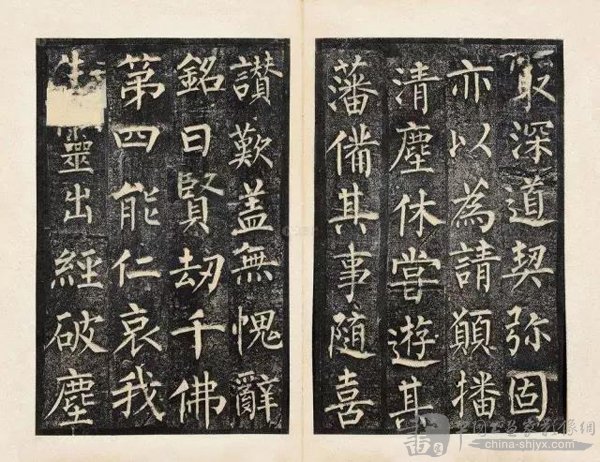 最深道契弥固
亦以為請願播
清塵休嘗遊其
藩備其事隨喜
讃歎蓋無愧辭
銘曰賢劫千佛
第四能仁哀我
生靈出經破塵
china-shjyx.com